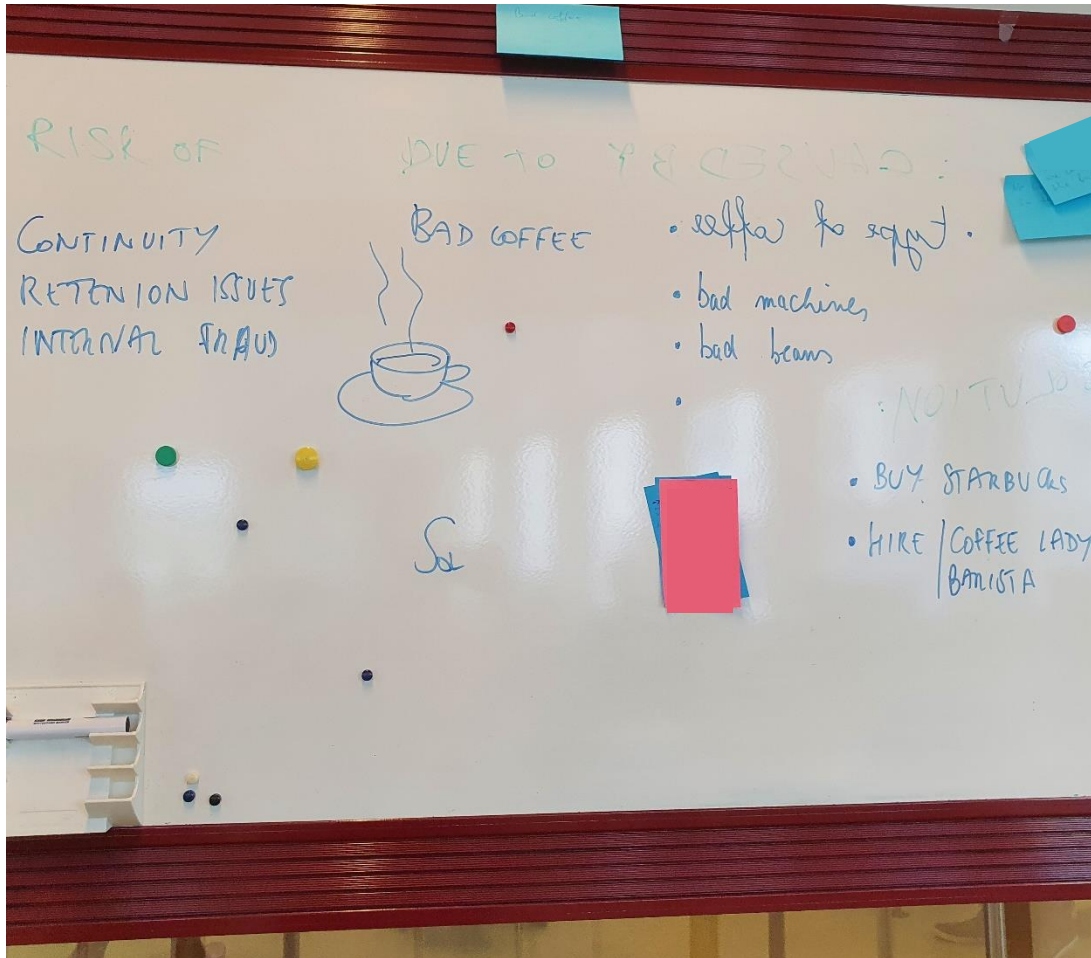 RISK OF DUE TO CAUSED BY:
CONTINUITY
RETENION ISSUES
INTERNAL FRAUD
BAD COFFEE
• types of coffee •
• bad machines
• bad beans
•
SOLUTION:
• BUY STARBUCKS
• HIRE / COFFEE LADY
BARISTA
Sol